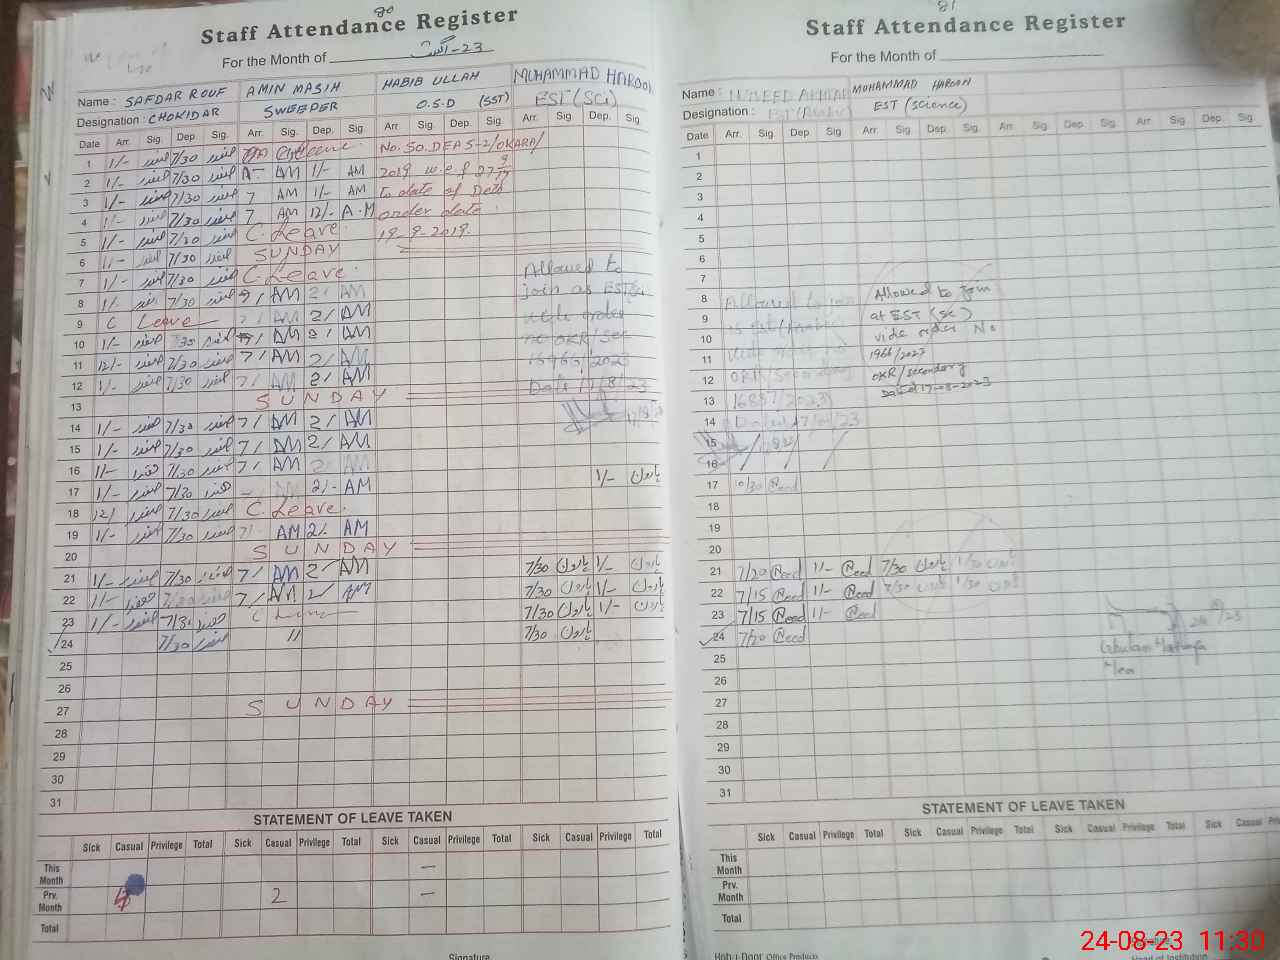 80
Staff Attendance Register
For the Month of اگست-23
Name : SAFDAR ROUF AMIN MASIH HABIB ULLAH MUHAMMAD HAROON
Designation : CHOKIDAR SWEEPER O.S.D (SST) EST (SCi)
Date Arr. Sig. Dep. Sig. Arr. Sig. Dep. Sig. Arr. Sig. Dep. Sig. Arr. Sig. Dep. Sig.
1 1/- صفدر 7/30 صفدر Leave No. SO. DEA S-2/OKARA/
2 1/- صفدر 7/30 صفدر AM 1/- AM 2019 w.e.f
3 1/- صفدر 7/30 صفدر 7 AM 1/- AM to date of
4 1/- صفدر 7/30 صفدر 7 AM 12/- A.M order date.
5 1/- صفدر 7/30 صفدر C. Leave 19-9-2019.
6 1/- صفدر 7/30 صفدر SUNDAY
7 1/- صفدر 7/30 صفدر C. Leave. Allowed to
8 1/- صفدر 7/30 صفدر 7/ AM 2/ AM join as EST
9 C Leave 7/ AM 2/ AM vide order
10 1/- صفدر 7/30 صفدر 7/ AM 2/ AM no OKR/Sec
11 12/- صفدر 7/30 صفدر 7/ AM 2/ AM 2023
12 1/- صفدر 7/30 صفدر 7/ AM 2/ AM Date 17/8/23
13 SUNDAY
14 1/- صفدر 7/30 صفدر 7/ AM 2/ AM
15 1/- صفدر 7/30 صفدر 7/ AM 2/ AM
16 1/- صفدر 7/30 صفدر 7/ AM 2/ AM
17 1/- صفدر 7/30 صفدر AM 2/- AM 1/- ہارون
18 12/ صفدر 7/30 صفدر C. Leave.
19 1/- صفدر 7/30 صفدر 7/ AM 2/ AM
20 SUNDAY
21 1/- صفدر 7/30 صفدر 7/ AM 2/ AM 7/30 ہارون 1/- ہارون
22 1/- صفدر 7/30 صفدر 7/ AM 2/ AM 7/30 ہارون 1/- ہارون
23 1/- صفدر 7/30 صفدر C Leave 7/30 ہارون 1/- ہارون
24 7/30 صفدر 〃 7/30 ہارون
25
26
27 SUNDAY
28
29
30
31
STATEMENT OF LEAVE TAKEN
Sick Casual Privilege Total Sick Casual Privilege Total Sick Casual Privilege Total Sick Casual Privilege Total
This Month —
Prv. Month 2 —
Total
Signature
81
Staff Attendance Register
For the Month of
Name : MUHAMMAD HAROON
Designation : EST (Arabic) EST (Science)
Date Arr. Sig. Dep. Sig. Arr. Sig. Dep. Sig. Arr. Sig. Dep. Sig. Arr. Sig. Dep. Sig.
1
2
3
4
5
6
7
8 Allowed to join Allowed to Join
9 as EST (Arabic) at EST (Sc)
10 vide order No
11 1966/2023
12 OKR/Secondary OKR/secondary
13 16887/2023 Dated 17-08-2023
14 Dated 17/08/23
15
16
17
18
19
20
21 7/20 1/- 7/30 ہارون 1/30
22 7/15 1/- 7/30 1/30
23 7/15 1/-
24 7/20
25
26
27
28
29
30
31
STATEMENT OF LEAVE TAKEN
Sick Casual Privilege Total Sick Casual Privilege Total Sick Casual Privilege Total Sick Casual Privilege
This Month
Prv. Month
Total
Office Products
Head of Institution
24-08-23 11:30